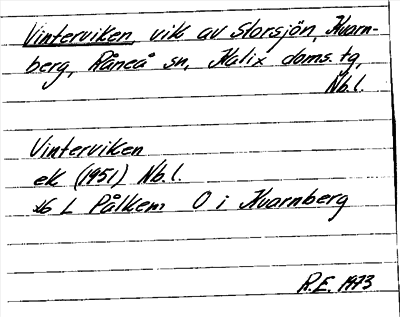 Vinterviken vik av Storsjön, Kvarn-
berg, Råneå sn, Kalix doms. tg,
Nb.l.
Vinterviken
ek (1951) Nb.l.
26 L Pålkem O i Kvarnberg
R.E. 1973